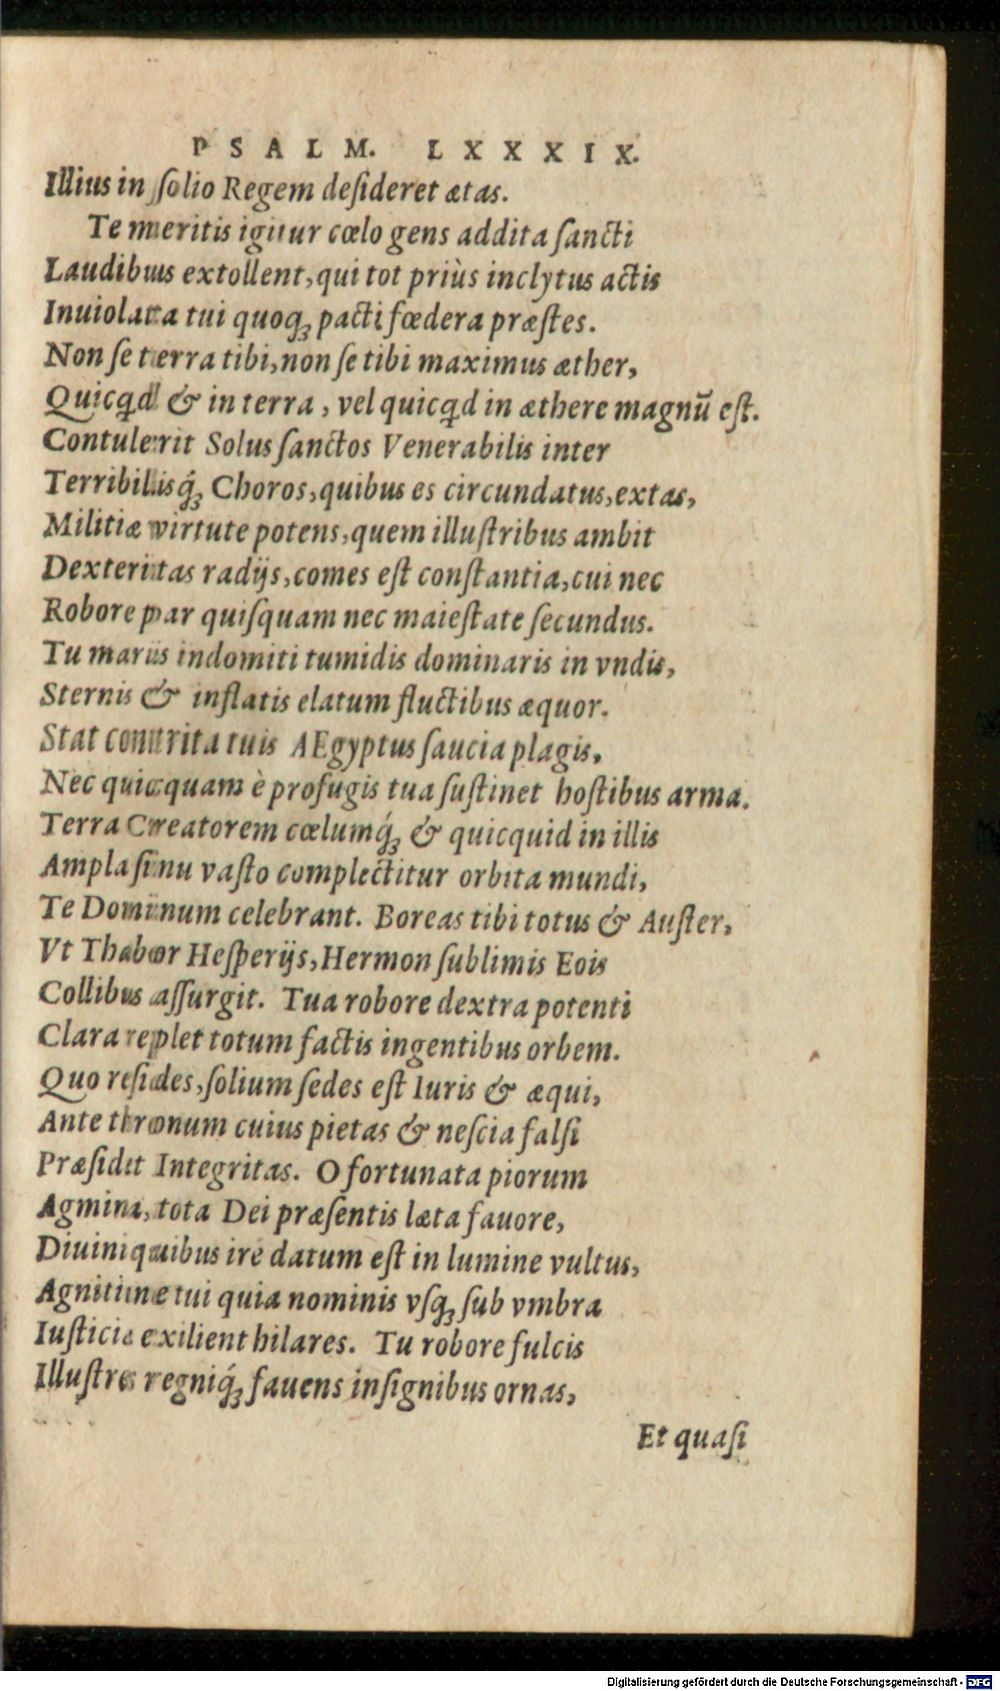 PSALM. LXXXIX.
Illius in ſolio Regem deſideret ætas.
Te meritis igitur cœlo gens addita ſancti
Laudibus extollent, qui tot priùs inclytus actis
Inuiolata tui quoq; pacti fœdera præſtes.
Non ſe terra tibi, non ſe tibi maximus æther,
Quicq̃d & in terra, vel quicq̃d in æthere magnũ eſt.
Contulerit Solus ſanctos Venerabilis inter
Terribilisq́; Choros, quibus es circundatus, extas,
Militiæ virtute potens, quem illuſtribus ambit
Dexteritas radijs, comes eſt conſtantia, cui nec
Robore par quiſquam nec maieſtate ſecundus.
Tu maris indomiti tumidis dominaris in vndis,
Sternis & inflatis elatum fluctibus æquor.
Stat contrita tuis AEgyptus ſaucia plagis,
Nec quicquam è profugis tua ſuſtinet hoſtibus arma.
Terra Creatorem cœlumq́; & quicquid in illis
Ampla ſinu vaſto complectitur orbita mundi,
Te Dominum celebrant. Boreas tibi totus & Auſter,
Vt Thabor Heſperijs, Hermon ſublimis Eois
Collibus aſſurgit. Tua robore dextra potenti
Clara replet totum factis ingentibus orbem.
Quo reſides, ſolium ſedes eſt Iuris & æqui,
Ante thronum cuius pietas & neſcia falſi
Præſidet Integritas. O fortunata piorum
Agmina, tota Dei præſentis læta fauore,
Diuini quibus ire datum eſt in lumine vultus,
Agnitione tui quia nominis vſq; ſub vmbra
Iuſticia exilient hilares. Tu robore fulcis
Illuſtres regniq́; fauens inſignibus ornas,
Et quaſi
Digitalisierung gefördert durch die Deutsche Forschungsgemeinschaft - DFG